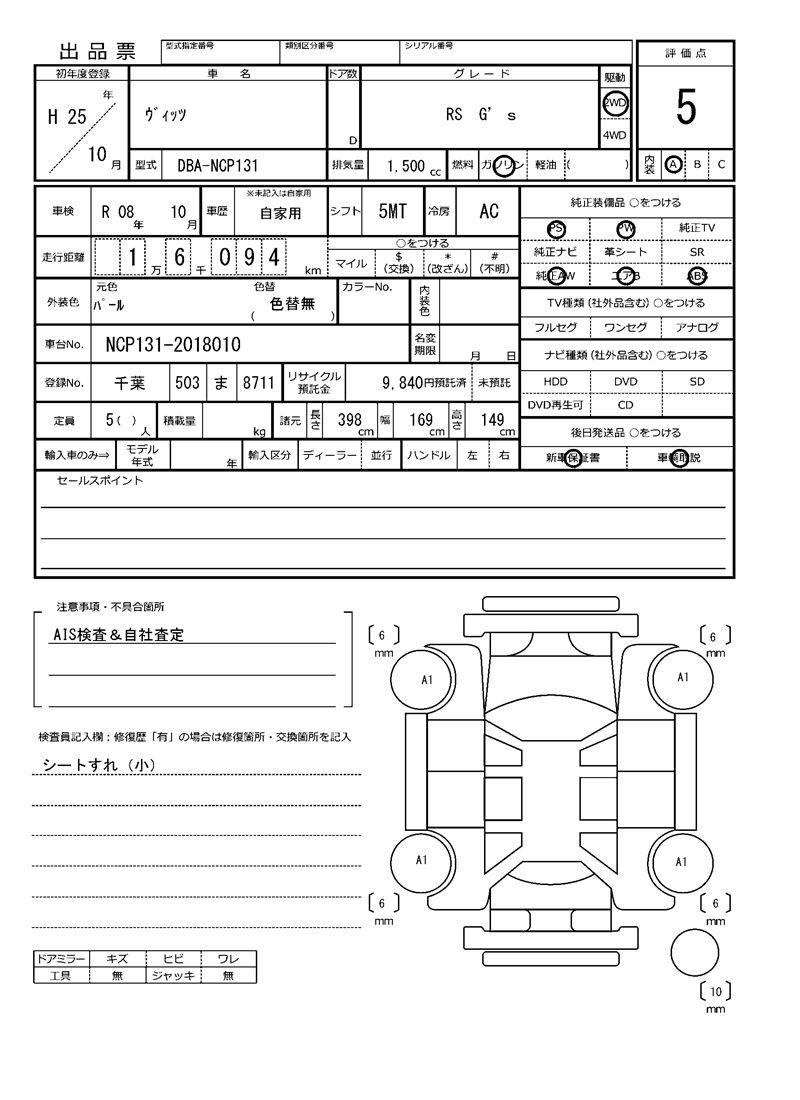 出品票
型式指定番号 類別区分番号 シリアル番号
評価点
初年度登録 車名 ドア数 グレード 駆動
H 25 年
10 月
ヴィッツ
D
RS G's
2WD
4WD
5
型式 DBA-NCP131 排気量 1,500 cc 燃料 ガソリン 軽油 ( )
内装 A B C
車検 R 08 年 10 月 車歴 ※未記入は自家用 自家用 シフト 5MT 冷房 AC
純正装備品 ○をつける
PS PW 純正TV
純正ナビ 革シート SR
純正AW エアB ABS
走行距離 1 万 6 千 0 9 4 km
○をつける
マイル $ (交換) * (改ざん) # (不明)
外装色 元色 パール 色替 色替無 ( ) カラーNo. 内装色
TV種類(社外品含む) ○をつける
フルセグ ワンセグ アナログ
車台No. NCP131-2018010 名変期限 月 日
ナビ種類(社外品含む) ○をつける
HDD DVD SD
DVD再生可 CD
登録No. 千葉 503 ま 8711 リサイクル預託金 9,840円預託済 未預託
定員 5 ( ) 人 積載量 kg 諸元 長さ 398 cm 幅 169 cm 高さ 149 cm
後日発送品 ○をつける
新車保証書 車輌取説
輸入車のみ⇒ モデル年式 年 輸入区分 ディーラー 並行 ハンドル 左 右
セールスポイント
注意事項・不具合箇所
AIS検査&自社査定
検査員記入欄:修復歴「有」の場合は修復箇所・交換箇所を記入
シートすれ(小)
ドアミラー キズ ヒビ ワレ
工具 無 ジャッキ 無
6 mm
6 mm
A1
A1
A1
A1
6 mm
6 mm
10 mm